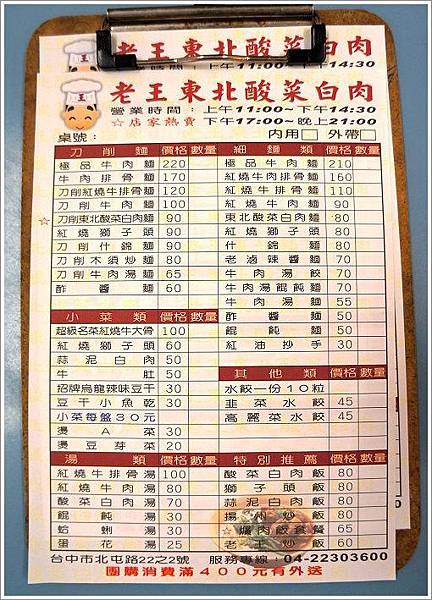 老王東北酸菜白肉
時間：上午11:00~下午14:30
老王東北酸菜白肉
營業時間：上午11:00~下午14:30
☆店家熱賣 下午17:00~晚上21:00
桌號： 內用□ 外帶□
刀削麵 價格 數量
極品牛肉麵 220
牛肉排骨麵 170
刀削紅燒牛排骨麵 120
刀削牛肉麵 100
☆刀削東北酸菜白肉麵 90
紅燒獅子頭 90
刀削什錦麵 90
刀削木須炒麵 80
刀削牛肉湯麵 65
酢醬麵 60
小菜類 價格 數量
超級名菜紅燒牛大骨 100
紅燒獅子頭 60
蒜泥白肉 50
牛肚 50
招牌烏龍辣味豆干 30
豆干小魚乾 30
小菜每盤30元
燙A菜 30
燙豆芽菜 20
湯類 價格 數量
紅燒牛排骨湯 100
紅燒牛肉湯 80
酸菜白肉湯 70
餛飩湯 30
蛤蜊湯 30
蛋花湯 25
細麵類 價格 數量
極品牛肉麵 210
紅燒牛肉排骨麵 160
紅燒牛排骨麵 110
紅燒牛肉麵 90
東北酸菜白肉麵 80
紅燒獅子頭 80
什錦麵 80
老滷辣醬麵 70
牛肉湯餃 70
牛肉湯餛飩麵 70
牛肉湯麵 55
酢醬麵 50
餛飩麵 50
紅油抄手 30
其他類 價格 數量
水餃一份10粒
韭菜水餃 45
高麗菜水餃 45
特別推薦 價格 數量
酸菜白肉飯 80
獅子頭飯 80
蒜泥白肉飯 80
揚州炒飯 60
☆爌肉飯套餐 65
老王炒飯 60
台中市北屯路22之2號 服務專線：04-22303600
團購消費滿400元有外送